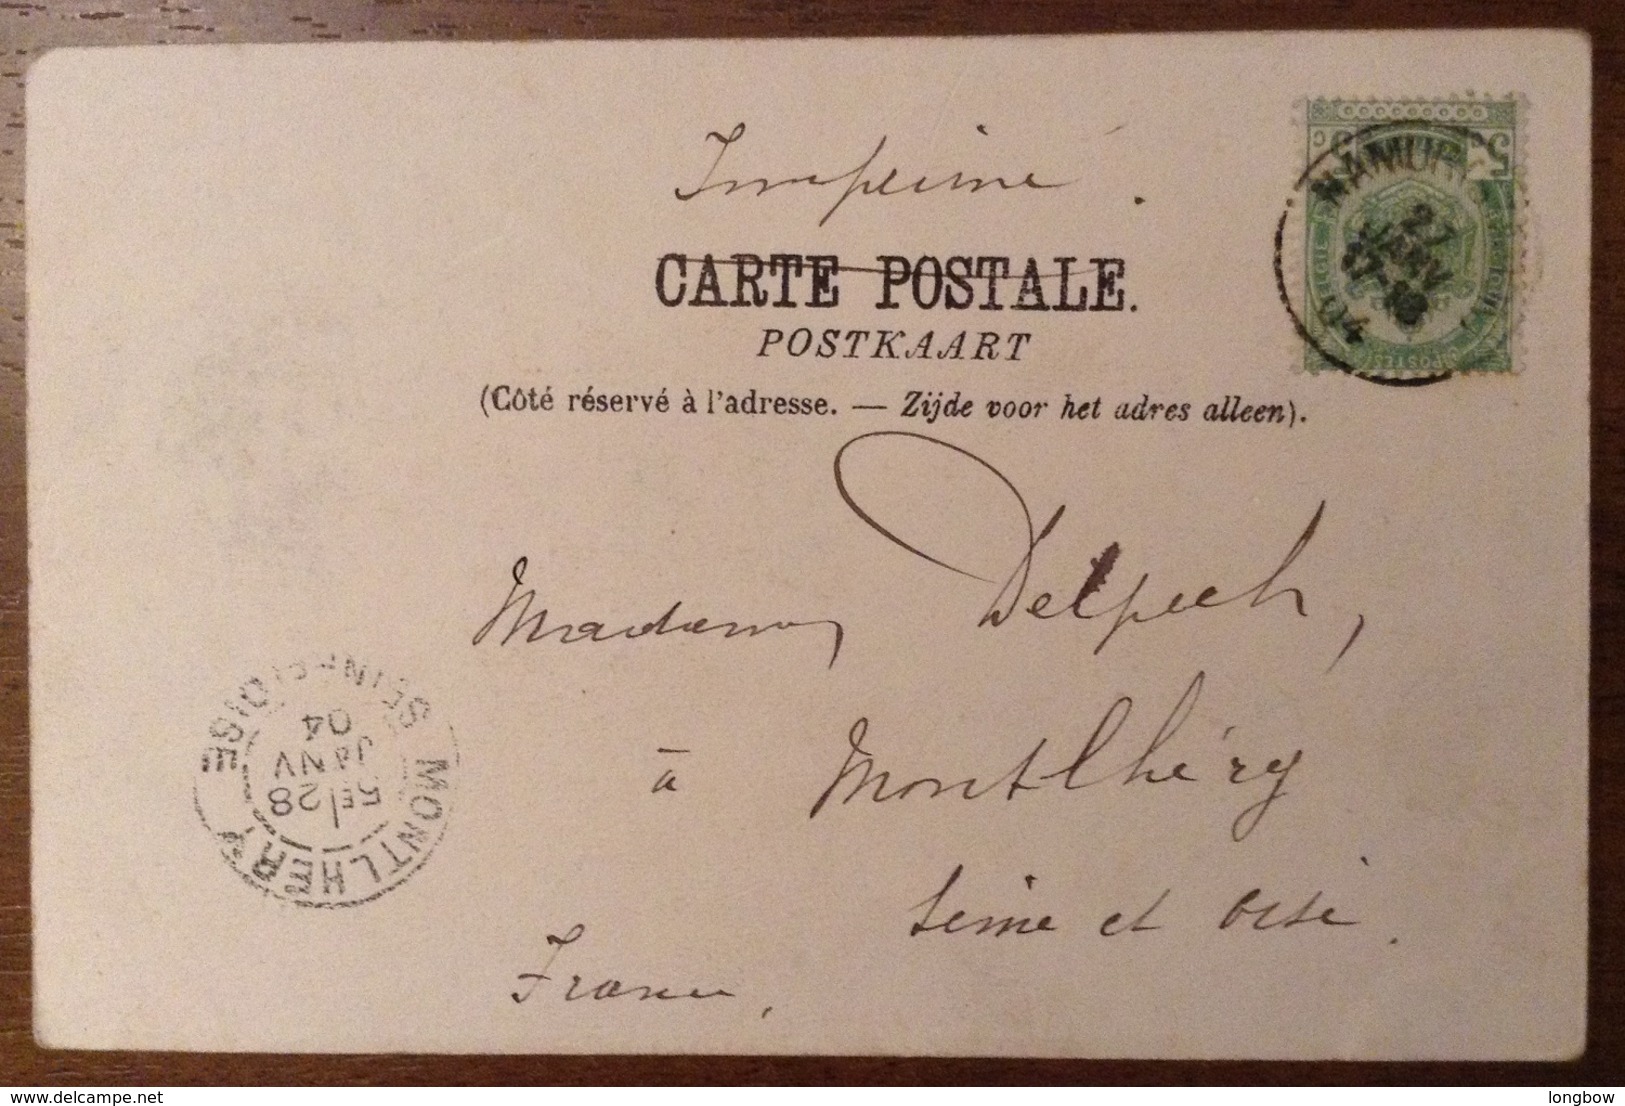 Imprimé.
CARTE POSTALE.
POSTKAART
(Côté réservé à l'adresse. — Zijde voor het adres alleen).
NAMUR
21
JANV
17-18
04
5
POSTES
Madame Delpech,
à Montlhéry
Seine et Oise.
France,
MONTLHERY
5E/28
JANV
04
SEINE-ET-OISE
www.delcampe.net
longbow